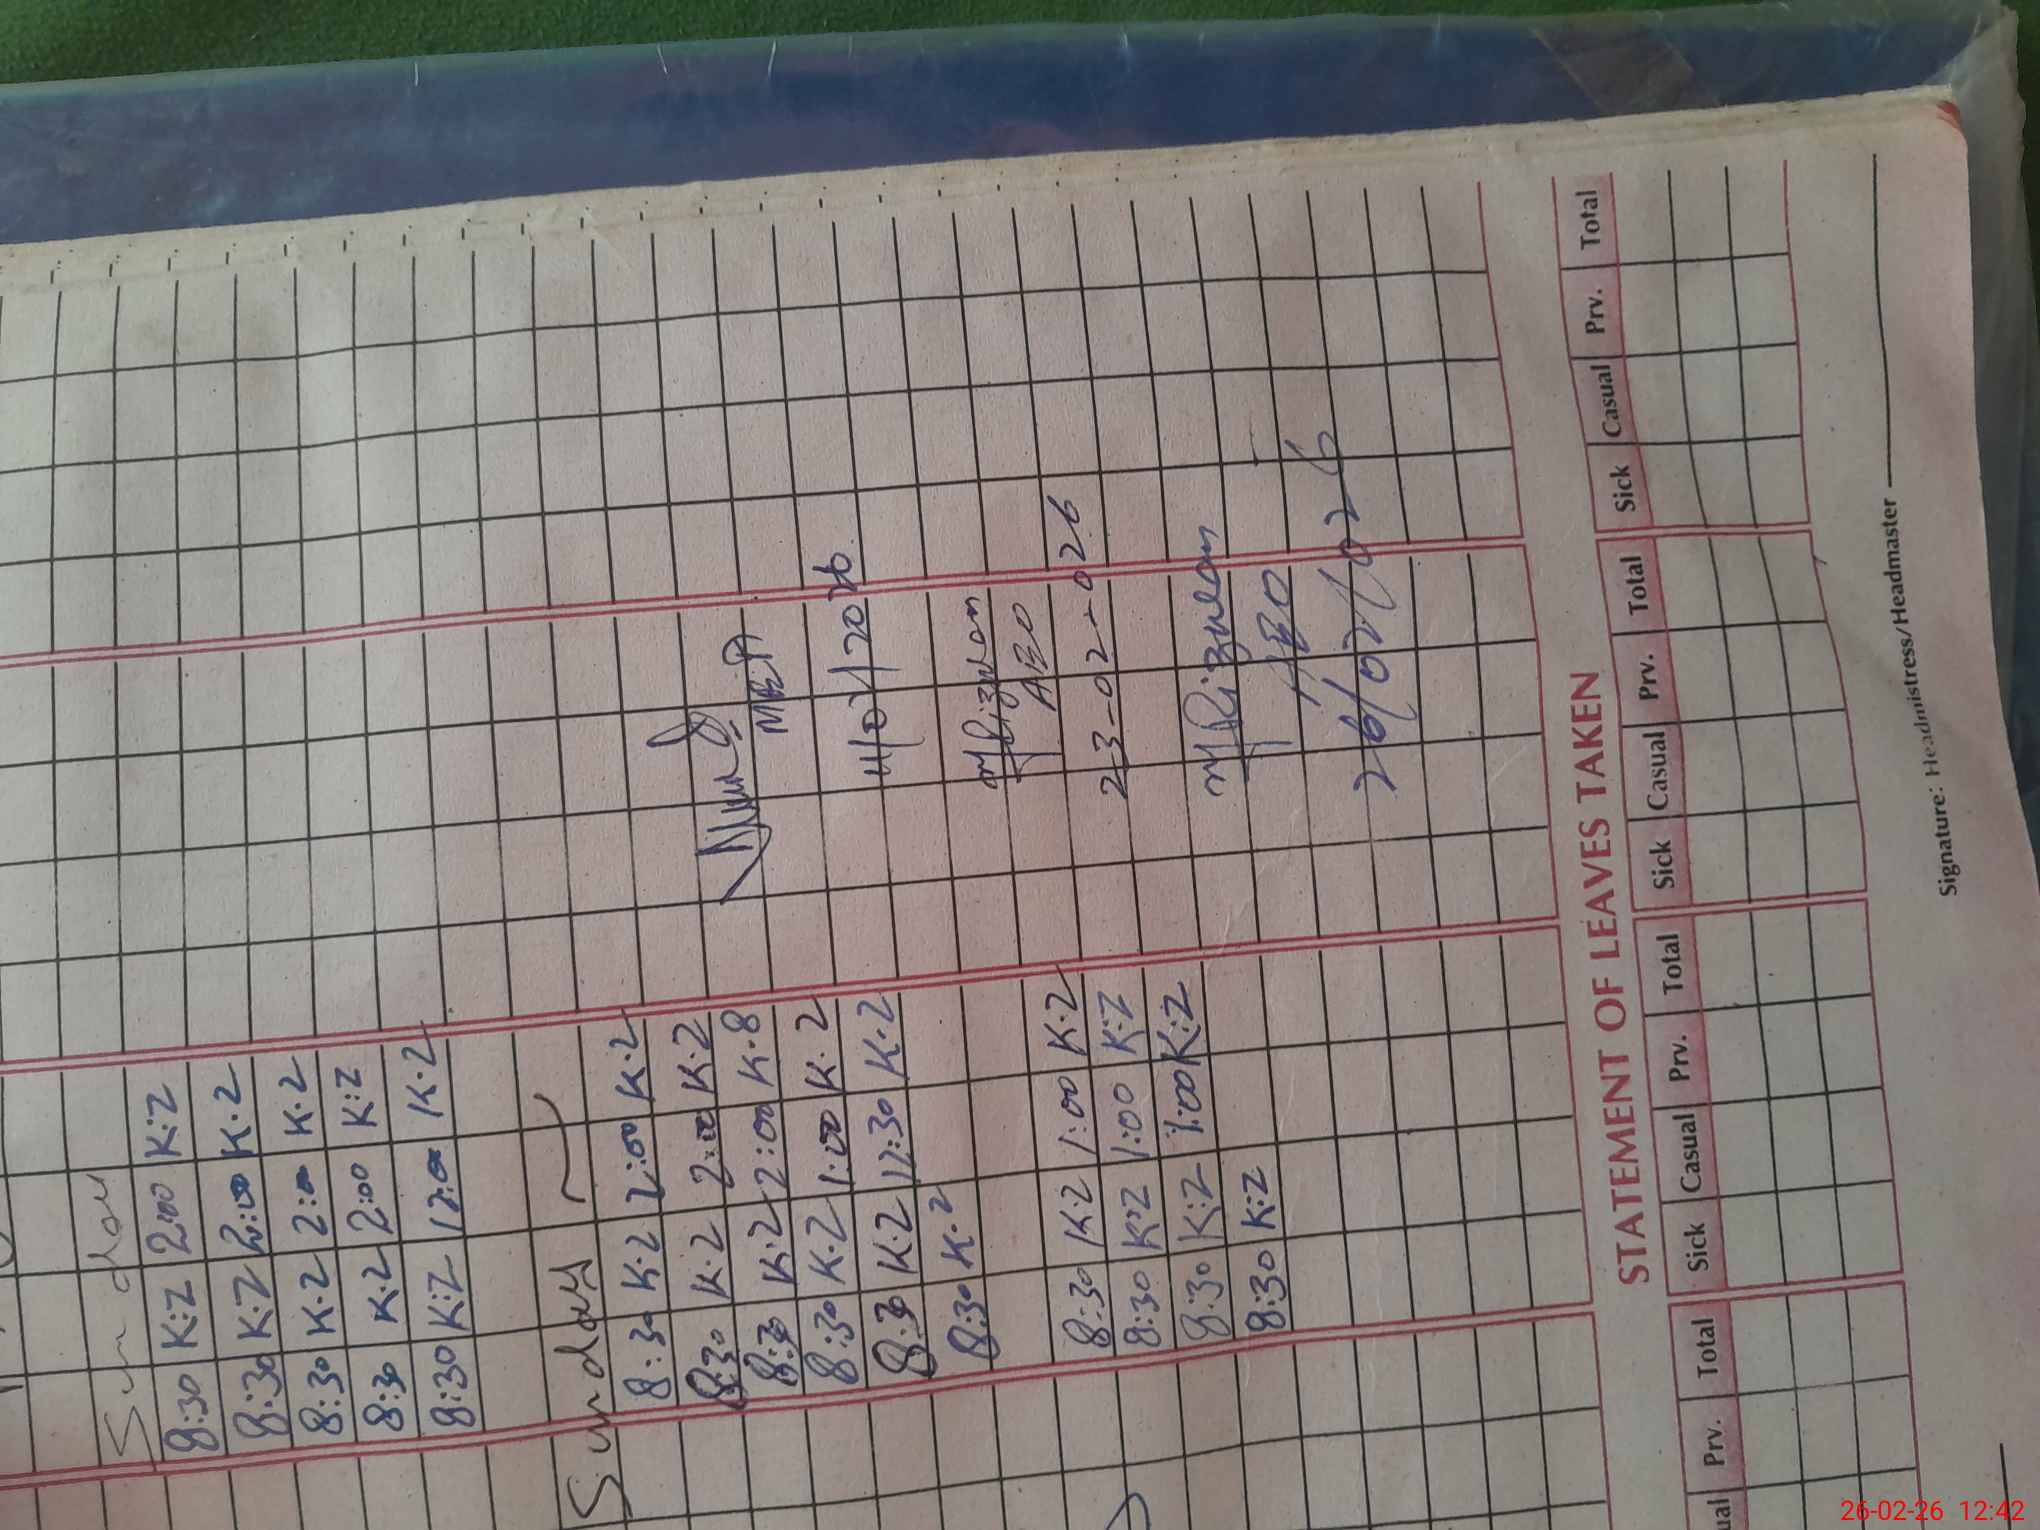 Sunday
8:30 K:Z 2:00 K:Z
8:30 K:Z 2:00 K.2
8:30 K.2 2:00 K.2
8:30 K.2 2:00 K:Z
8:30 K:Z 12:00 K.2
Sunday
8:30 K.2 2:00 K.2
8:30 K.2 2:00 K.2
8:30 K.2 2:00 K.8
8:30 K.2 1:00 K.2
8:30 K.2 12:30 K.2
8:30 K.2
8:30 K.2 1:00 K.2
8:30 K:Z 1:00 K:Z
8:30 K:Z 1:00 K:Z
8:30 K:Z
AEO
23-02-026
AEO
26/02/026
STATEMENT OF LEAVES TAKEN
Prv. Total Sick Casual Prv. Total Sick Casual Prv. Total Sick Casual Prv. Total
Signature: Headmistress/Headmaster
26-02-26 12:42